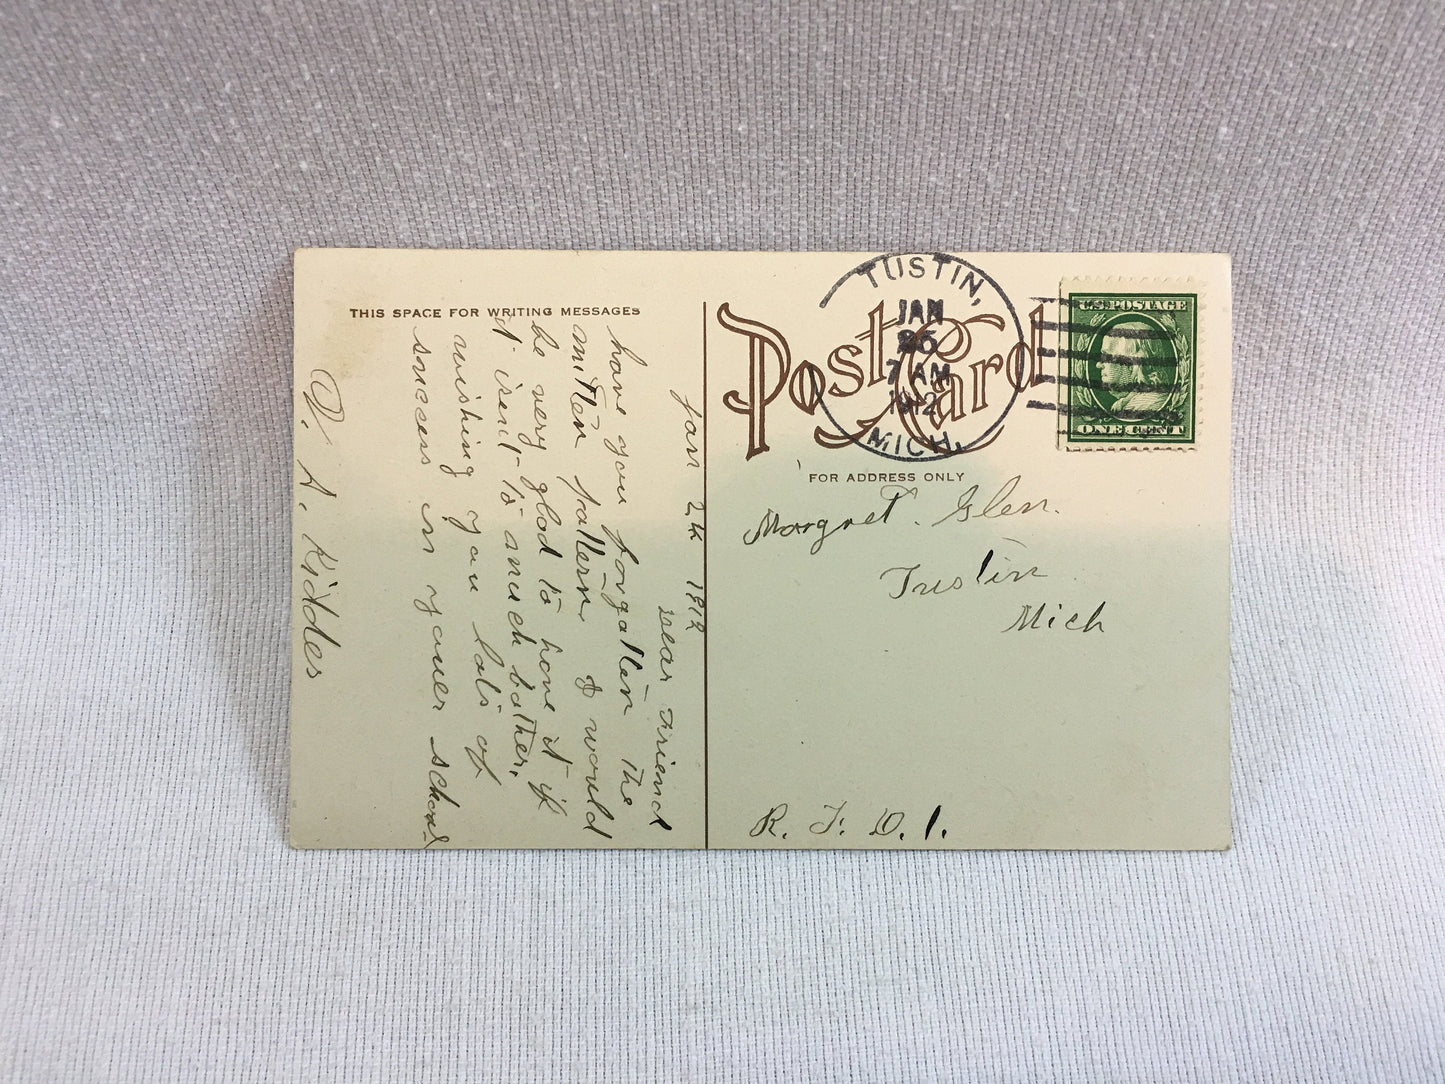 THIS SPACE FOR WRITING MESSAGES
Jan 24 1912
Dear Friend
have you forgatten the
mitten pattern. I would
be very glad to have it if
it isent to much bother.
wishing you lots of
success in youer school
A. Kiddes
Post Card
TUSTIN,
JAN
26
7 AM
1912
MICH.
U.S. POSTAGE
ONE CENT
FOR ADDRESS ONLY
Margret. Glen.
Tustin
Mich
R. F. D. 1.